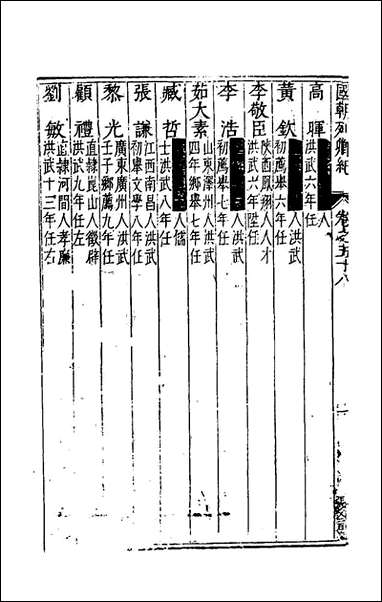 國朝列卿紀 卷之五十八
高暉 人
洪武六年任
黃欽 人洪武
初薦舉六年任
李敬臣 陝西鳳翔人人才
洪武六陞任
李浩 人洪武
初薦舉七年任
茹大素 山東澤州人洪武
四年鄉舉七年任
臧哲 人儒
士洪武八年任
張謙 江西南昌人洪武
初舉文學八年任
黎光 廣東廣州人洪武
壬子鄉薦九年任
顧禮 直隸崑山人徵辟
洪武九年任左
劉敏 直隸河間人孝廉
洪武十三年任右